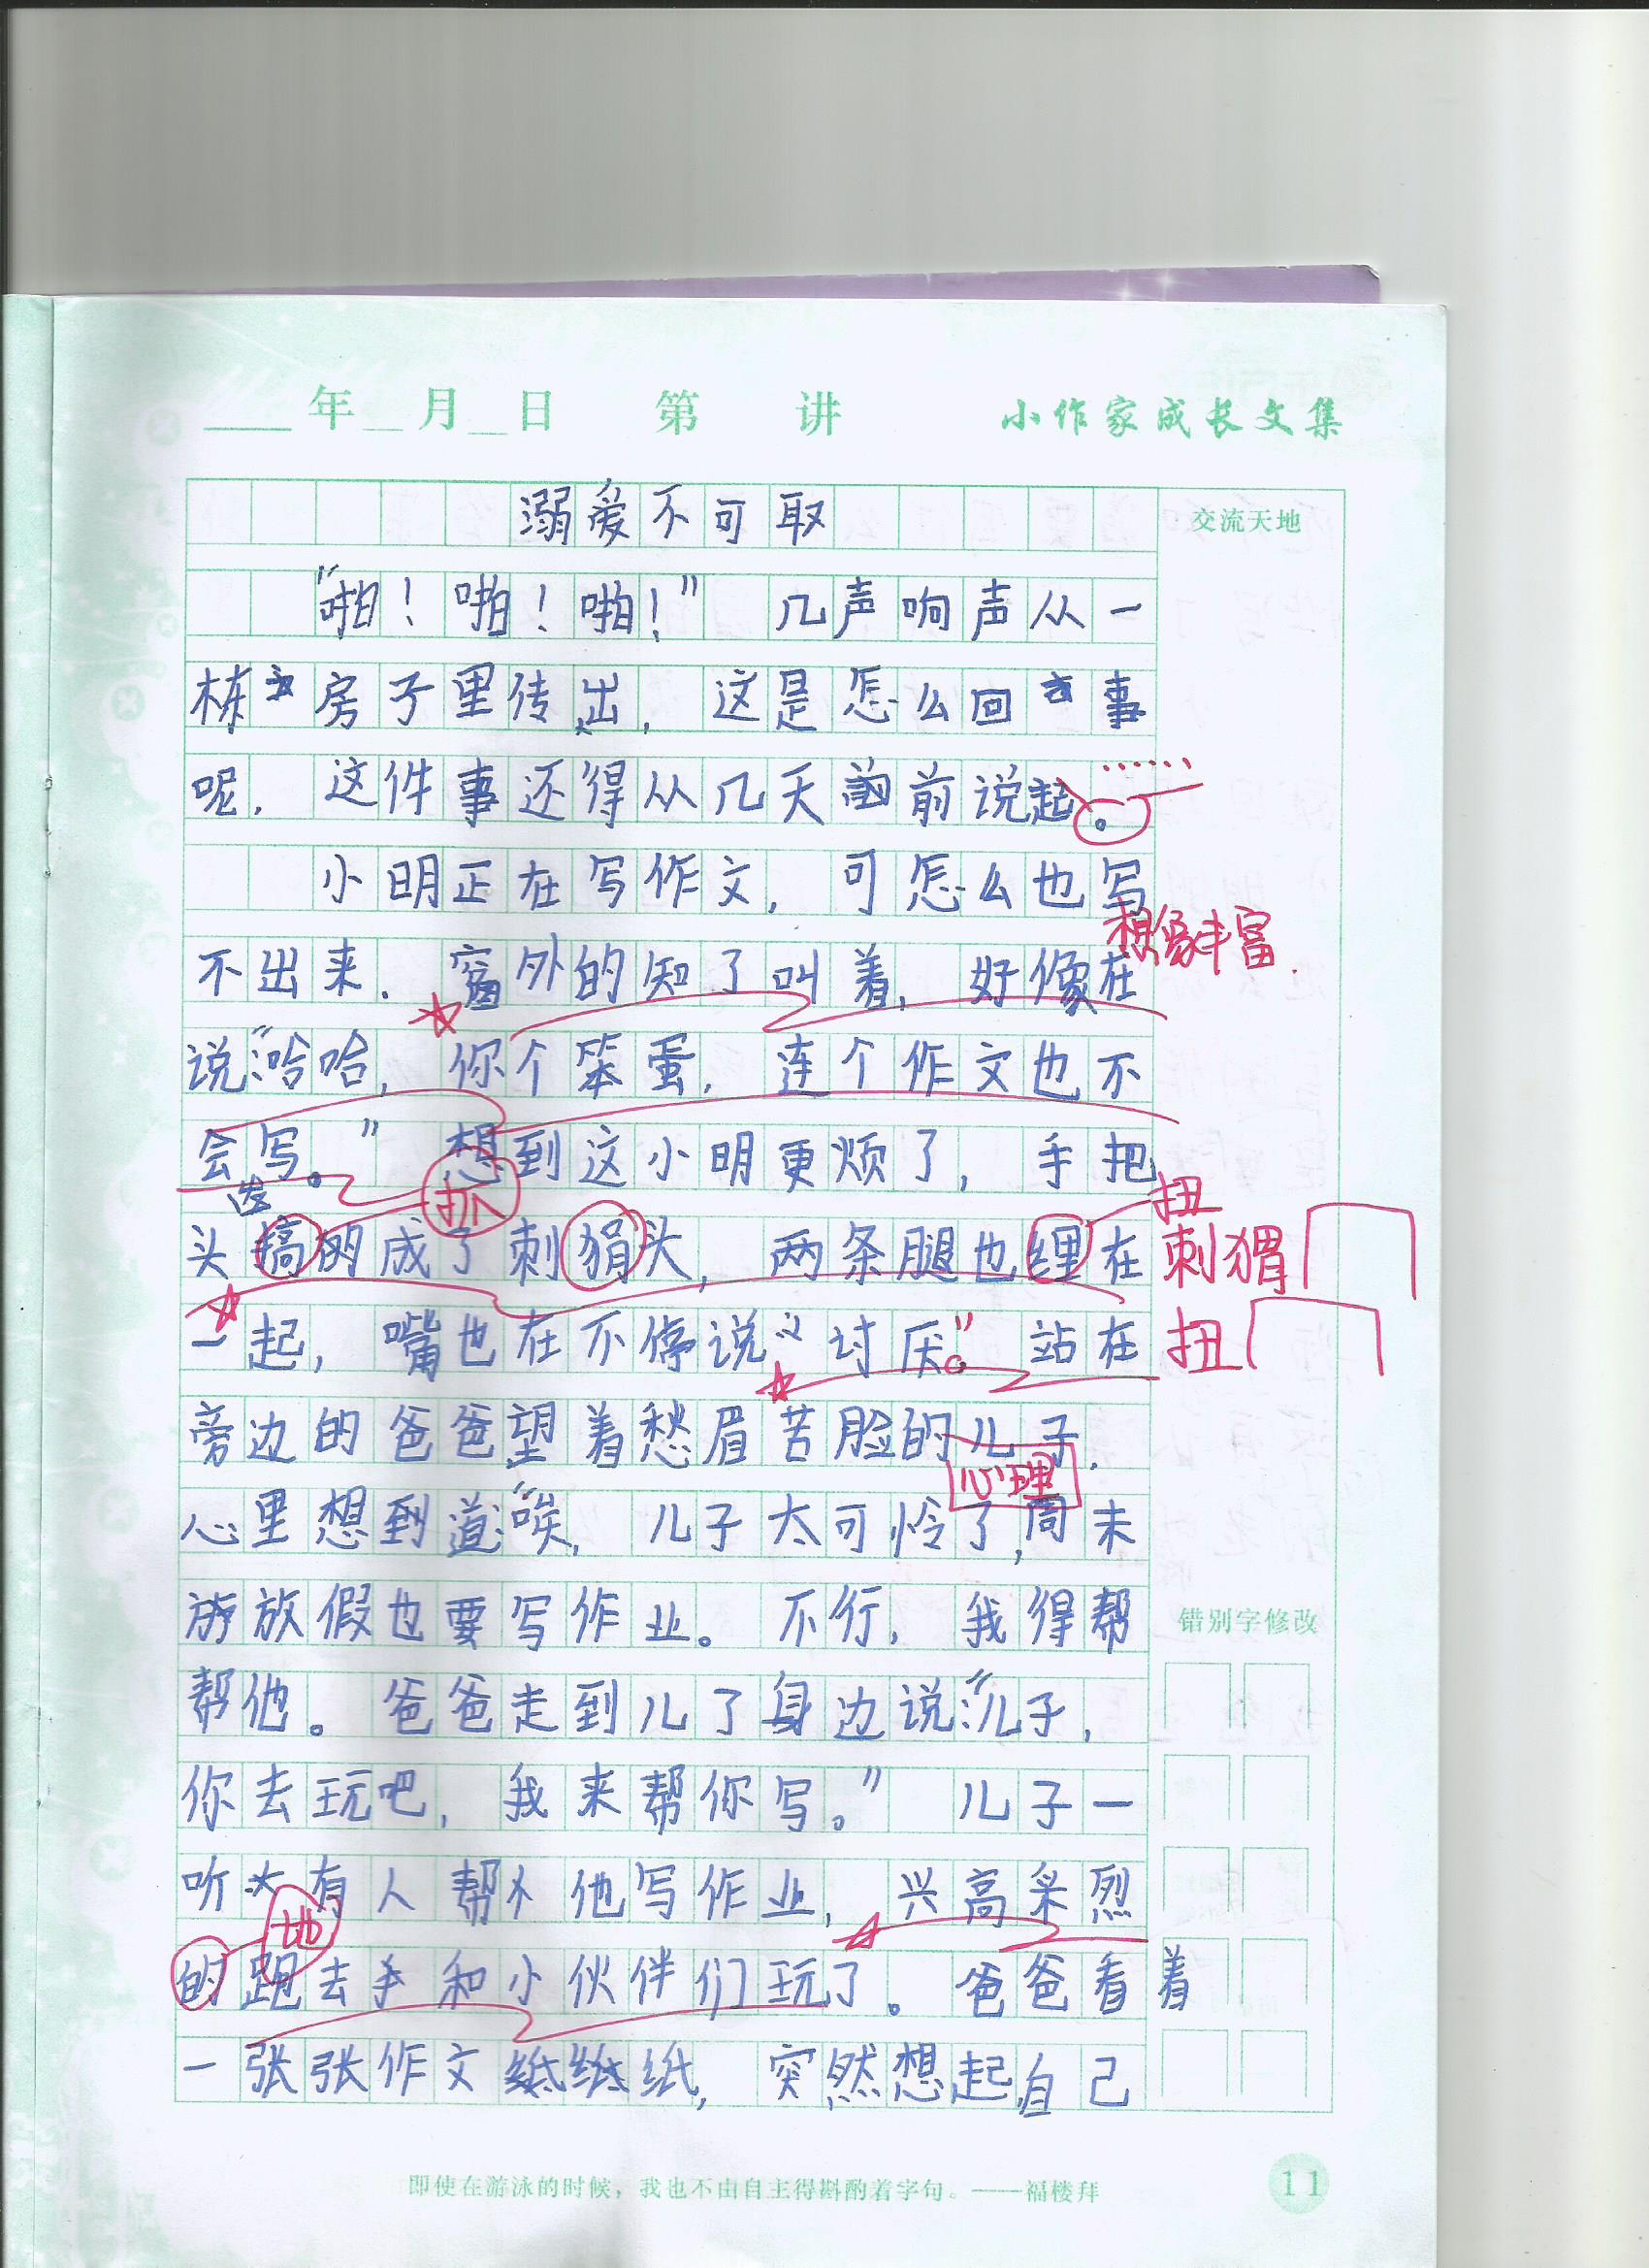 年 月 日 第 讲 小作家成长文集
溺爱不可取
交流天地
“啪！啪！啪！”几声响声从一
栋房子里传出，这是怎么回事
呢，这件事还得从几天前说起。
……
小明正在写作文，可怎么也写
想像丰富.
不出来.窗外的知了叫着，好像在
说：“哈哈，你个笨蛋，连个作文也不
会写。”想到这小明更烦了，手把
发 抓 扭
头搞的成了刺猬头，两条腿也缠在
刺猬
一起，嘴也在不停说：“讨厌。”站在
扭
旁边的爸爸望着愁眉苦脸的儿子.
心理
心里想到道：“唉，儿子太可怜了，周末
放假也要写作业。不行，我得帮
错别字修改
帮他。爸爸走到儿了身边说：“儿子，
你去玩吧，我来帮你写。”儿子一
听有人帮他写作业，兴高采烈
地
的跑去和小伙伴们玩了。爸爸看着
一张张作文纸，突然想起自己
即使在游泳的时候，我也不由自主得斟酌着字句。——福楼拜
11